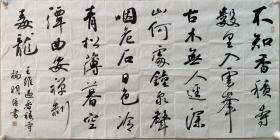 不知香積寺
數里入雲峰
古木無人逕深
山何處鐘泉聲
咽危石日色冷
青松薄暮空
潭曲安禪制
毒龍
王維過香積寺
楊明
書